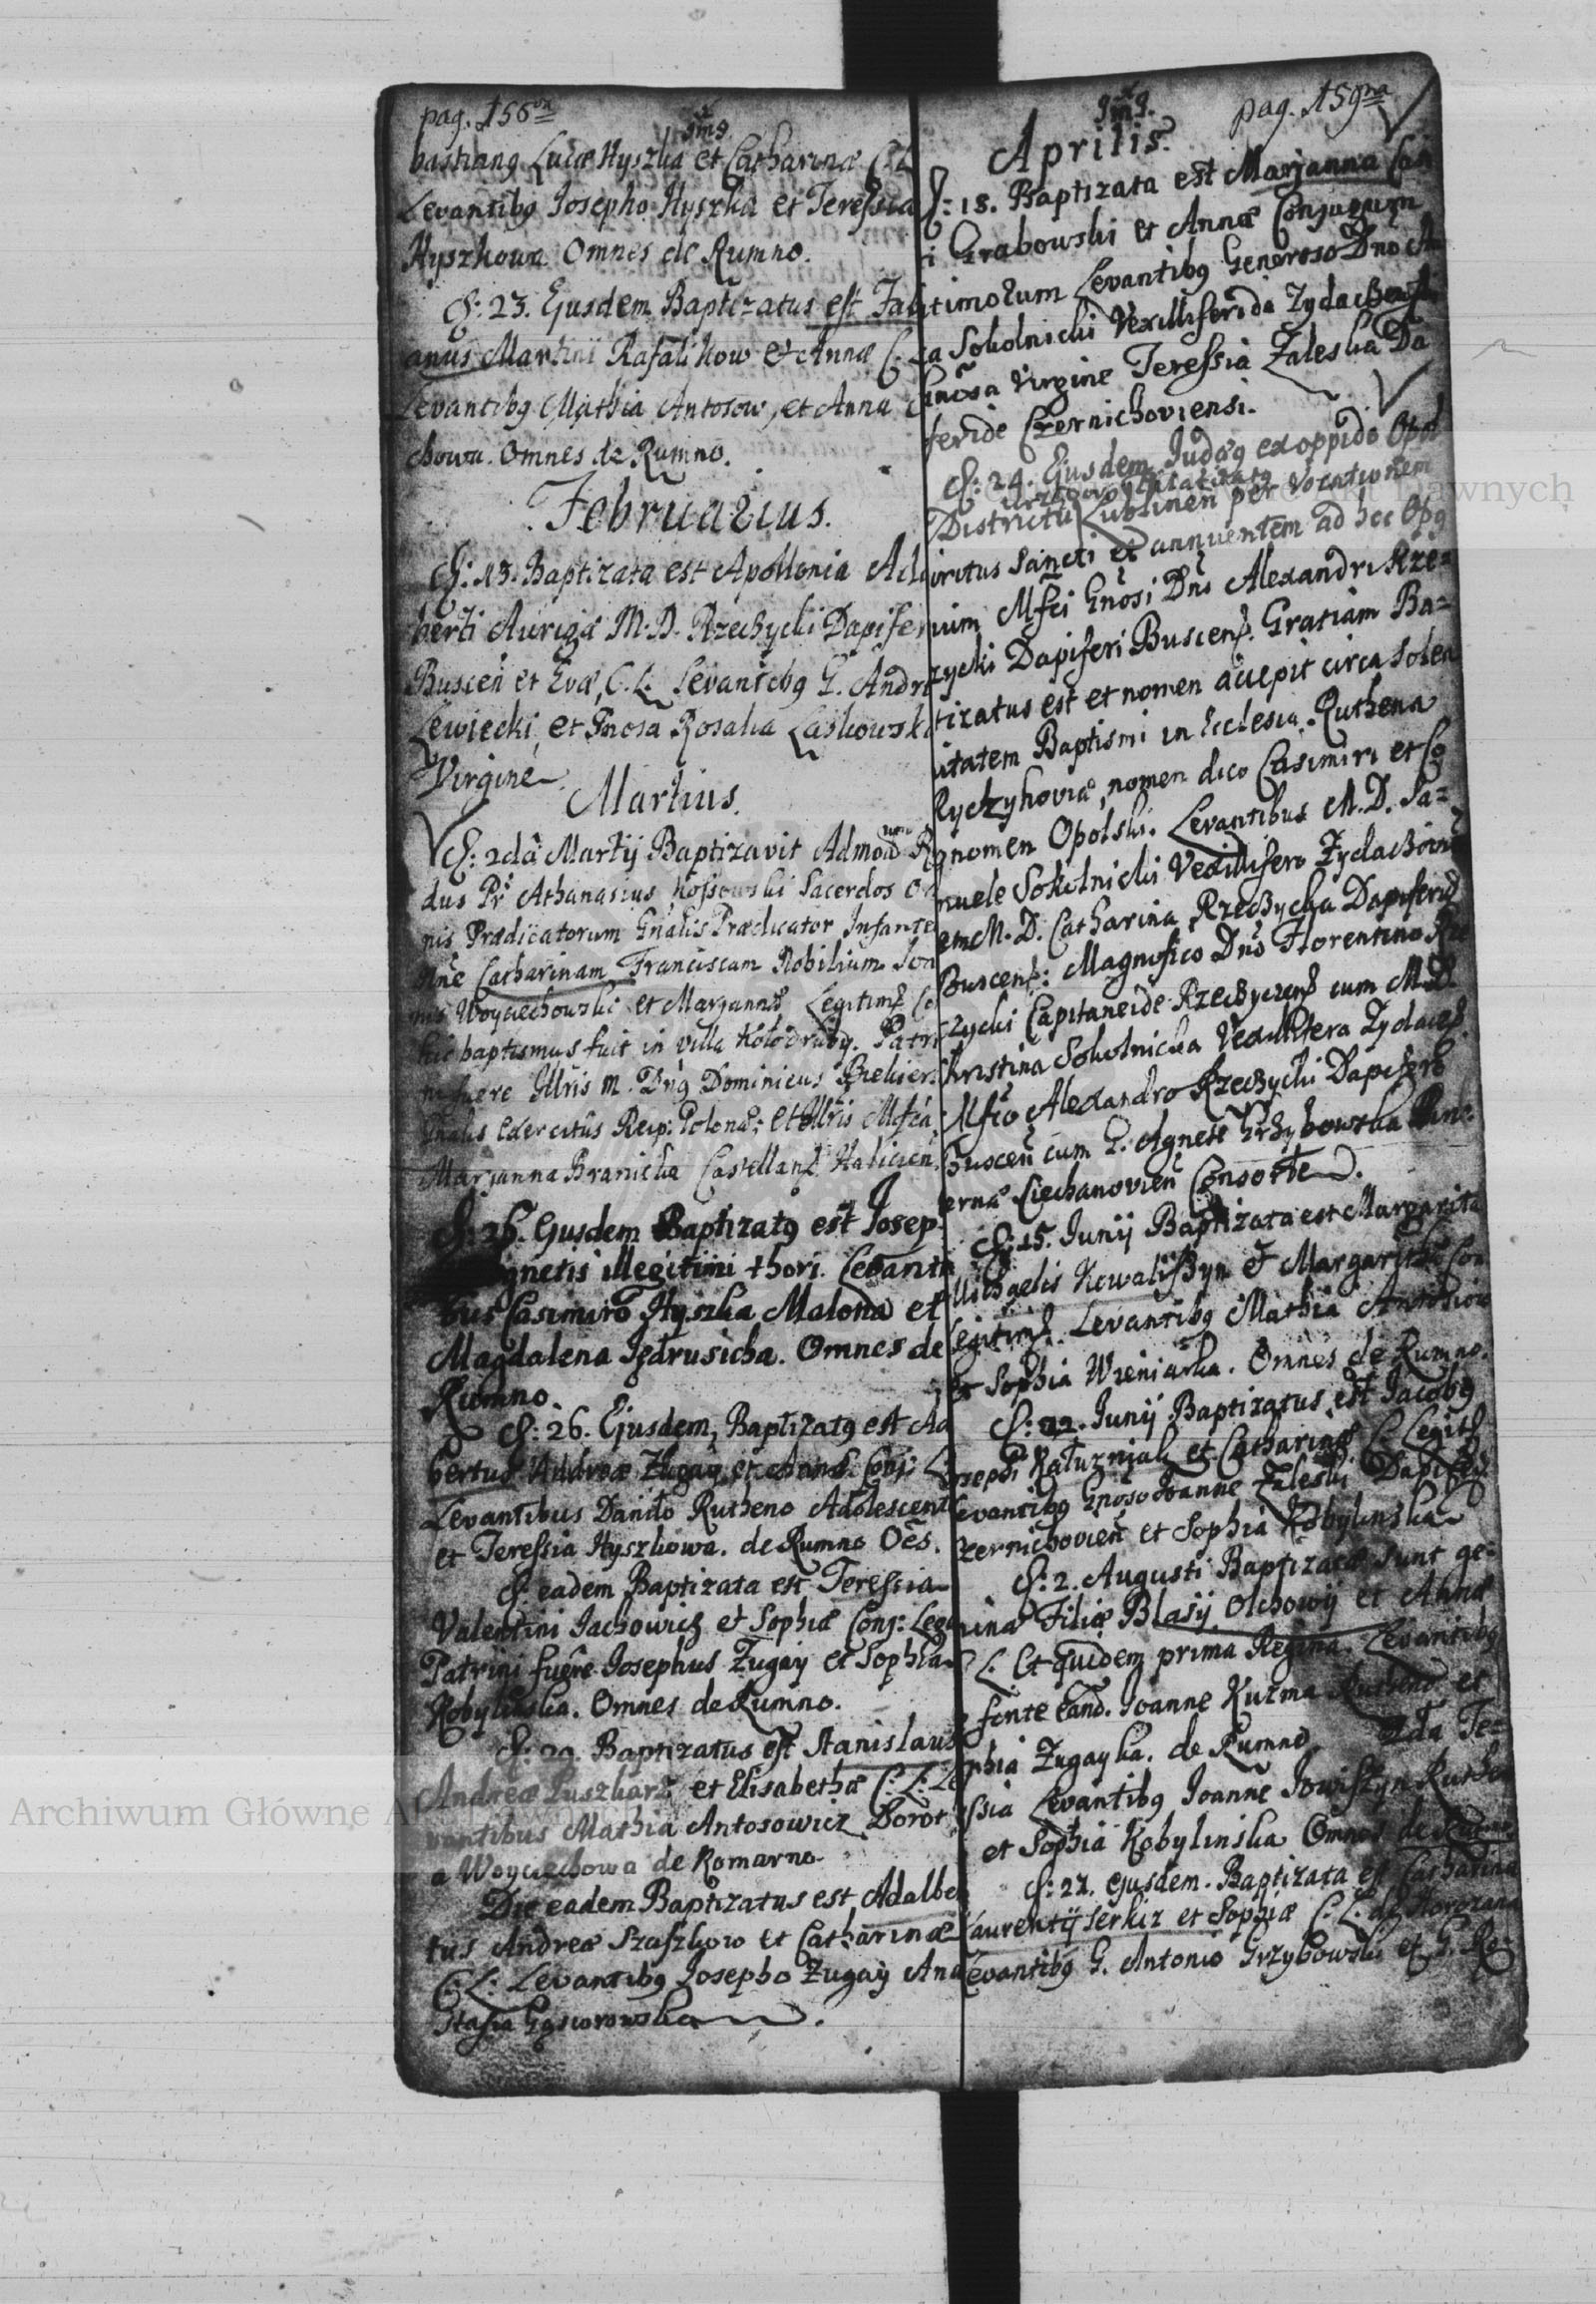 pag. 158va
bastiang Lucæ Hyszka et Catharinæ C. L
Levantibg Josepho Hyszka et Teressia
Hyszkowa Omnes de Rumno.
D: 23. Ejusdem Baptizatus est Fabi
anus Martini Rafalikow et Annæ C.
Levantibg Mathia Antosow, et Anna
chowa. Omnes de Rumno.
Februarius.
D: 13. Baptizata est Apollonia Adal
berti Aurigæ M. D. Rzeczycki Dapifer
Buscen et Evæ, C. L. Levantibg G. Andre
Lewiecki, et Gnosa Rosalia Laskowska
Virgine
Martius.
D: 2da Martij Baptizavit Admodum R
dus Pr Athanasius Kossowski Sacerdos Or
nis Prædicatorum Gnalis Prædicator Infante
Nne Catharinam Franciscam Nobilium
Woyciechowski et Marjannæ Legitim
hic baptismus fuit in villa Kołodruby. Patri
ni fuere Illris M. Dng Dominicus
Gnalis Exercitus Reip: Polonæ; et Illris Mfca
Marjanna Branicka Castellan Halicien
D: 25. Ejusdem Baptizatg est Josep
Agnetis illegitimi thori. Levanti
bus Casimiro Hyszka Malona et
Magdalena Jędrusicha. Omnes de
Rumno.
D: 26. Ejusdem, Baptizatg est Ad
bertus Andreæ Zugay et Annæ Conj: L
Levantibus Daniło Rutheno Adolescent
et Teressia Hyszkowa. de Rumno Oes.
D: eadem Baptizata est Teressia
Valentini Jachowicz et Sophiæ Conj: Legi
Patrini fuere Josephus Zugay et Sophia
Kobylinska. Omnes de Rumno.
D: 29. Baptizatus est Stanislaus
Andreæ Puszkarz et Elisabethæ C: L: Le
vantibus Mathia Antosowicz Dorot
a Woyciechowa de Komarno.
Die eadem Baptizatus est Adalber
tus Andreæ Szaszkow et Catharinæ
C: L: Levantibg Josepho Zugay Ana
stasia Gąsiorowska.
pag. 159na
Aprilis.
D: 18. Baptizata est Marjanna Cas
i Grabowski et Annæ Conjugum
timorum Levantibg Generoso Dno A
ca Sokolnicki Vexilliferide Zydaczovien
Gnosa Virgine Teressia Zaleska Da
feride Czernichoviensi.
D: 24. Ejusdem Judæg ex oppido Opol
Districtu Lublinen per Vocationem
iritus Sancti et annuentem ad hoc Opg
ium Mfci Gnosi Dni Alexandri Rze-
zycki Dapiferi Buscens. Gratiam Ba-
tizatus est et nomen accepit circa Solen
itatem Baptismi in Ecclesia Ruthena
Ryczyhoviæ, nomen dico Casimiri et Co
gnomen Opolski. Levantibus M. D. Sa-
muele Sokolnicki Vexillifero Zydaczovien
em M. D. Catharina Rzeczycka Dapiferid
Buscens: Magnifico Dno Florentino Rze
zycki Capitaneide Rzeczycens cum M. D.
Christina Sokolnicka Vexillifera Zydacz.
Mfco Alexandro Rzeczycki Dapifero
Buscen cum G. Agnete Grzybowska Pin-
cernæ Ciechanovien Consorte.
D: 15. Junij Baptizata est Margarita
Michaelis Kowaliszyn et Margaritæ Con
Legitim. Levantibg Mathia Antosiow
et Sophia Wieniarka. Omnes de Rumno.
D: 22. Junij Baptizatus est Jacobg
Josephi Kałuzniak et Catharinæ C. Legit
Levantibg Gnoso Joanne Zaleski Dapiferid
Czernichovien et Sophia Kobylinska
D: 2. Augusti Baptizatæ sunt ge-
minæ Filiæ Blasij Olchowij et Annæ
C. L. Et quidem prima Regina Levantibg
e fonte eand. Joanne Kuzma Rutheno et
phia Zugayka. de Rumno. 2da Te-
ressia Levantibg Joanne Iowiszyn Ruthen
et Sophia Kobylinska Omnes de Rumno
D: 22. ejusdem. Baptizata est Catharina
Laurentij Serkiz et Sophiæ C. L. de Horozana
Levantibg G. Antonio Grzybowski et G. Ro-
Archiwum Główne Akt Dawnych